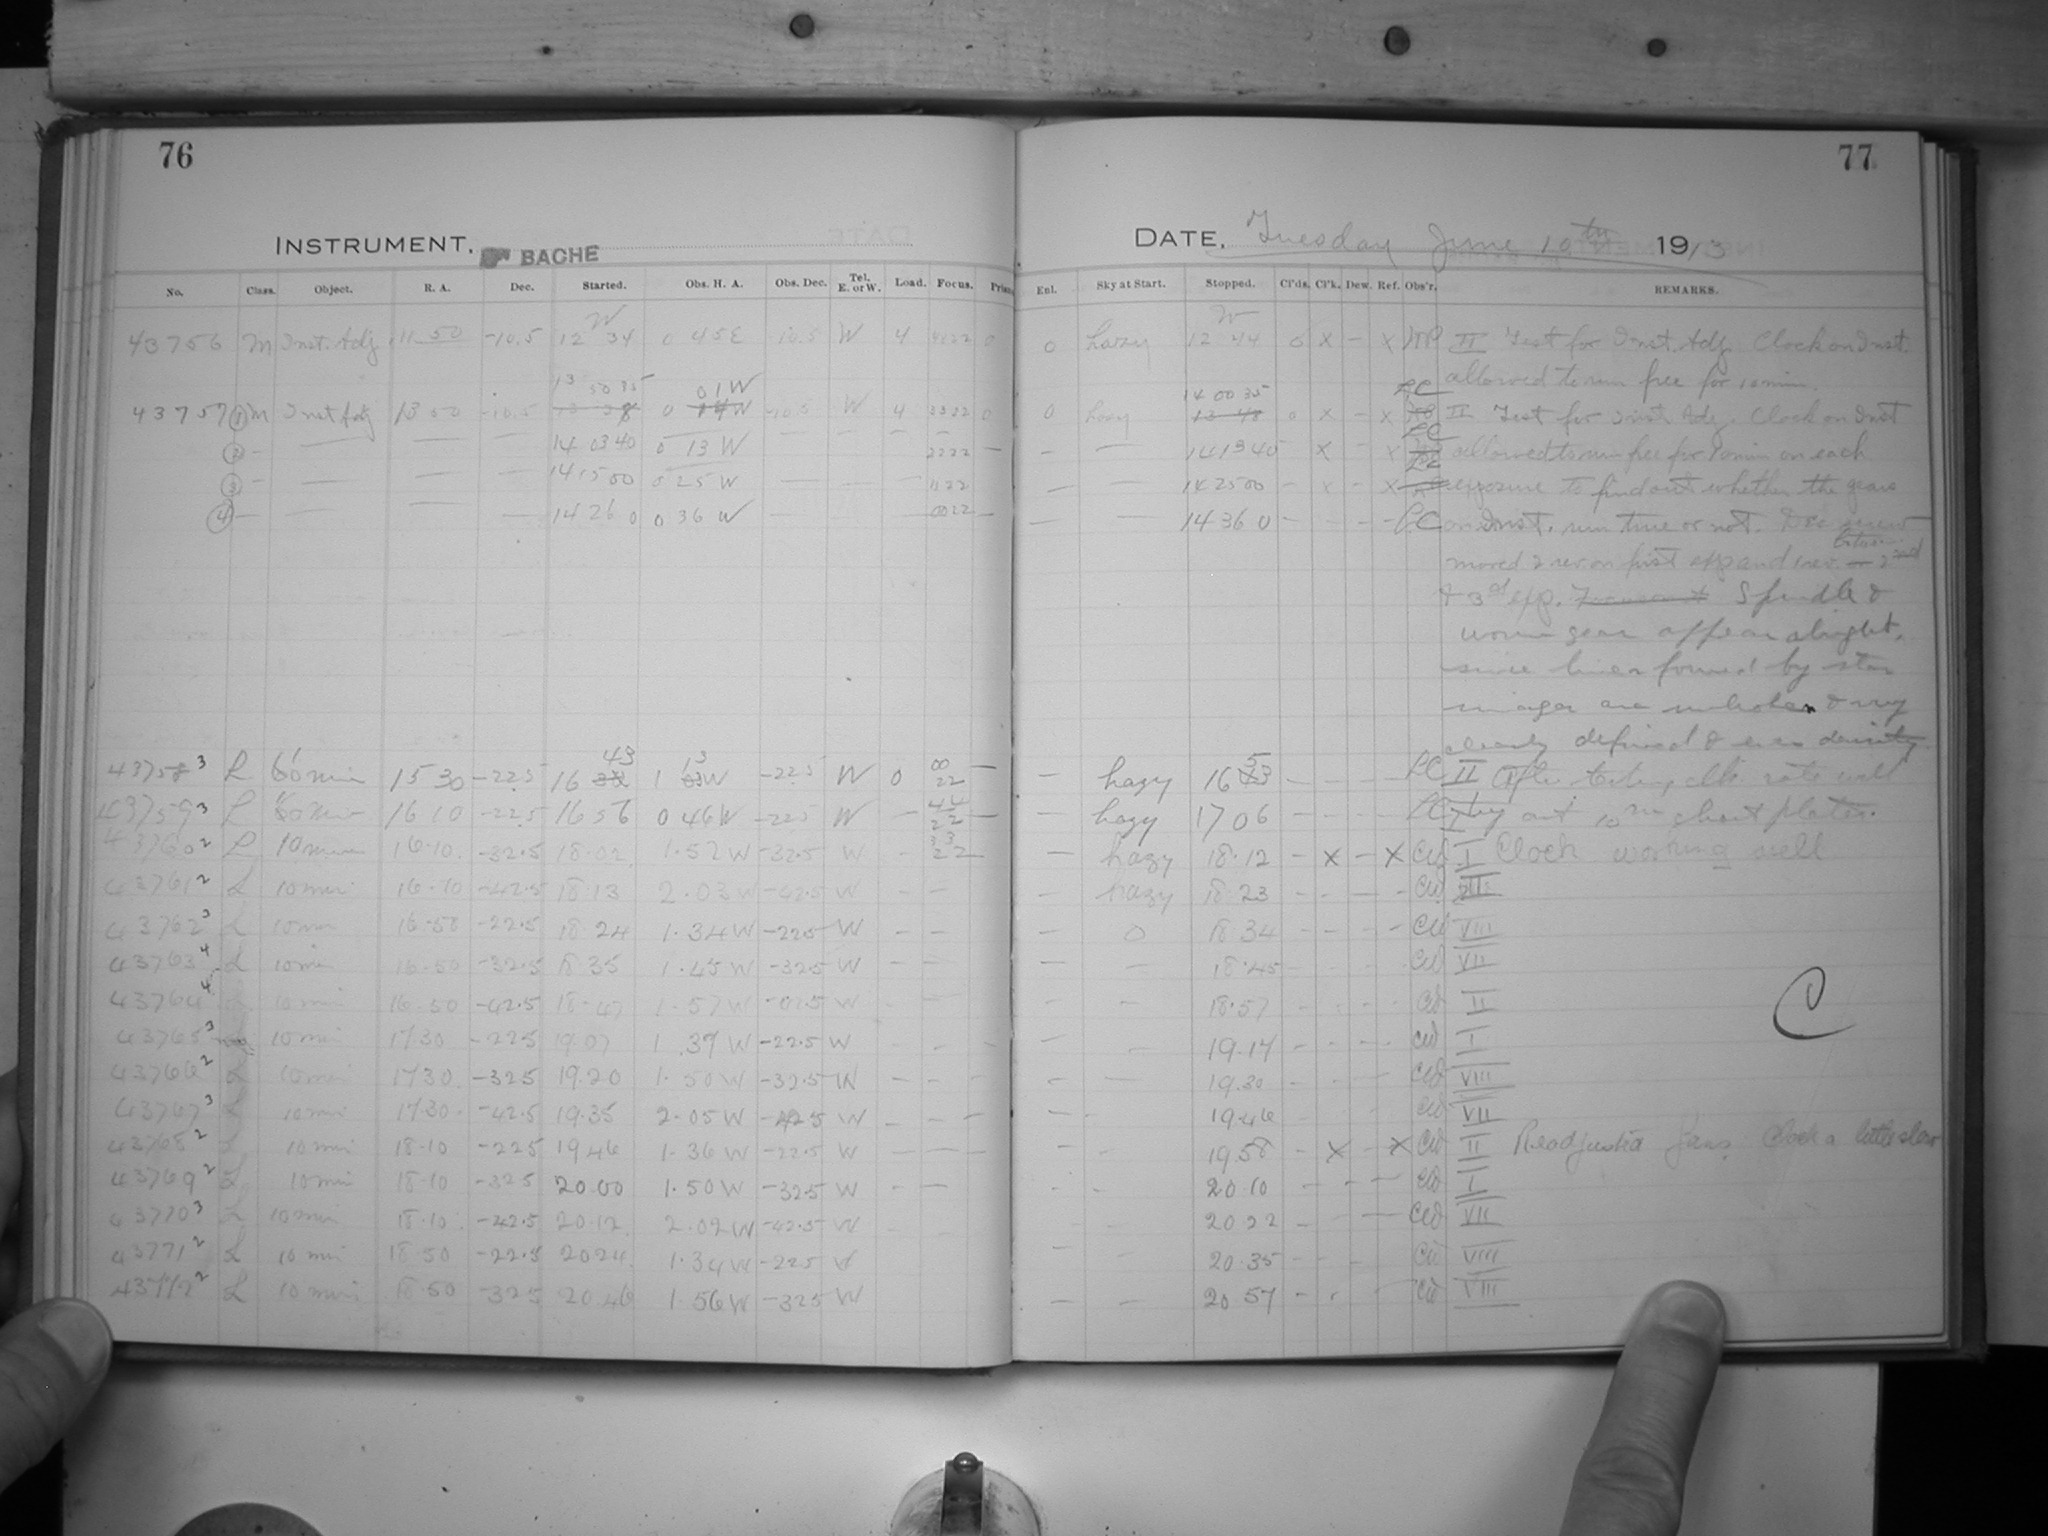 76
INSTRUMENT. BACHE
No. Class. Object. R. A. Dec. Started. Obs. H. A. Obs. Dec. Tel. E. or W. Load. Focus.
43756 M Inst. Adj 11 50 -10.5 12 34 0 45E -10.5 W 4 0
43757 1 M Inst Adj 13 50 -10.5 13 50 35 0 01W -10.5 W 4 0
2 — — — — 14 03 40 0 13 W — — — 2222 —
3 — — — — 14 15 00 0 25 W — — — 1122
4 — — — — 14 26 0 0 36 W — 0022 —
43758 3 L 60 min 15 30 -22.5 16 43 1 13 W -22.5 W 0 00 22 —
43759 3 L 16 10 -22.5 16 56 0 46W -22.5 W — 44 22 —
43760 2 L 10 min 16.10 -32.5 18.02 1.52 W -32.5 W — 33 22
43761 2 L 10 min 16.10 -42.5 18.13 2.03 W -42.5 W — —
43762 3 L 10 min 16.50 -22.5 18 24 1.34 W -22.5 W — —
43763 4 L 10 min 16.50 -32.5 18 35 1.45 W -32.5 W — —
43764 4 L 10 min 16.50 -42.5 18.47 1.57 W W
43765 3 10 min 17 30 -22.5 19 07 1.37 W -22.5 W
43766 2 L 10 min 17 30 -32.5 19.20 1.50 W -32.5 W — —
43767 3 L 10 min 17.30 -42.5 19.35 2.05 W -42.5 W — —
43768 2 L 10 min 18.10 -22.5 19 46 1.36 W -22.5 W — —
43769 2 L 10 min 18.10 -32.5 20.00 1.50 W -32.5 W — —
43770 3 L 10 min 18.10 -42.5 20.12 2.02 W -42.5 W
43771 2 L 10 min 18 50 -22.5 20 24 1.34 W -22.5 W
43772 2 L 10 min 18.50 -32.5 20 46 1.56 W -32.5 W
77
DATE, Tuesday June 10th 1913
Enl. Sky at Start. Stopped. Cl'ds. Cl'k. Dew. Ref. Obs'r. REMARKS.
0 hazy 12 44 0 x — x II Test for Inst. Adj. Clock on Inst.
allowed to run free for 10 min.
0 hazy 14 00 35 0 x — x LC II Test for Inst Adj. Clock on Inst
— — 14 13 40 x x LC allowed to run free for 10 min on each
— — 14 25 00 — x — x LC exposure to find out whether the gears
— — 14 36 0 — — — — LC on Inst. run true or not. Dec screw
moved 2 rev on first exp and 1 rev. between 2nd
& 3d exp. Spindle &
worm gear appear alright,
since lines formed by star
images are unbroken & very
clearly defined & even density
— hazy 16 53 — — — — LC II After testing clk. rate will
— hazy 17 06 — — — — LC I try out 10m short plates.
— hazy 18.12 — x — x CW I Clock working well
— hazy 18.23 — — — — CW
— 0 18 34 — — — — CW VIII
— — 18.45 CW VII
— — 18.57 CW II
— 19.17 CW I
— — 19.30 CW VIII
— — 19.46 CW VII
— — 19.58 — x — x CW II Readjusted fans. Clock a little slow
20.10 CW I
20 22 CW VII
20.35 CW VIII
— — 20 57 CW VIII
C